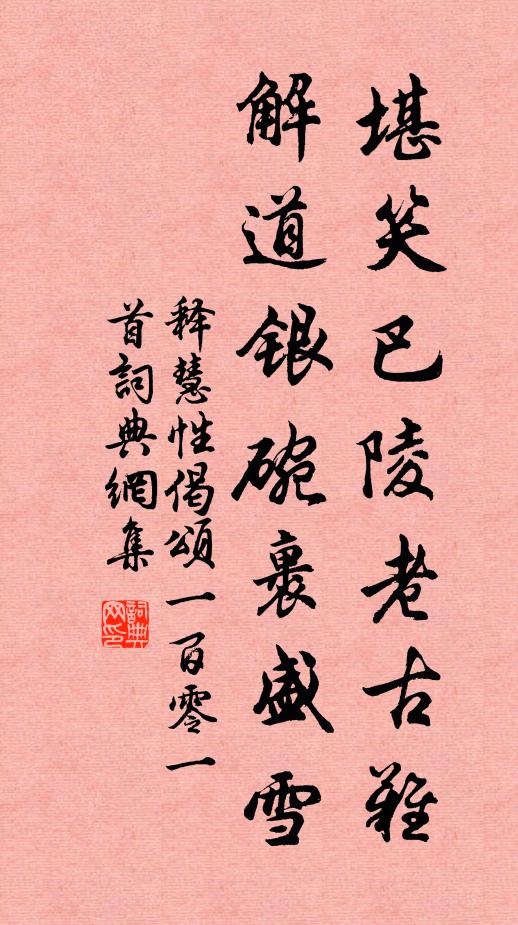 堪笑巴陵老古難
解道銀碗裹盛雪
释慧性偈頌一百零一
首詞典網集
詞典網印